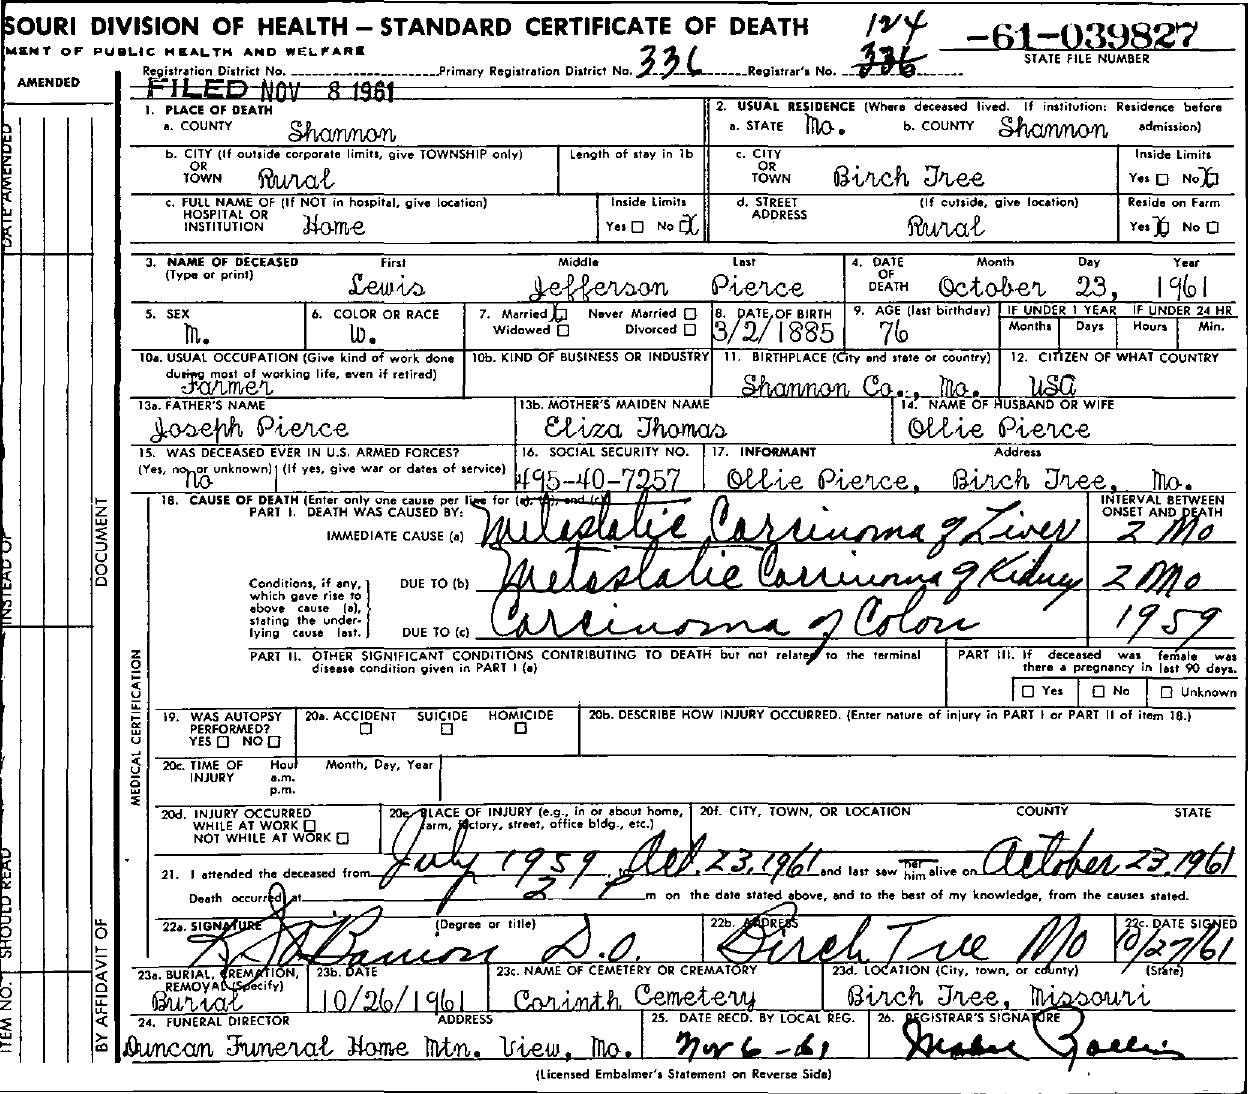 SOURI DIVISION OF HEALTH — STANDARD CERTIFICATE OF DEATH 124 -61-039827
MENT OF PUBLIC HEALTH AND WELFARE STATE FILE NUMBER
AMENDED Registration District No. Primary Registration District No. 336 Registrar's No. 336
FILED NOV 8 1961
1. PLACE OF DEATH 2. USUAL RESIDENCE (Where deceased lived. If institution: Residence before admission)
a. COUNTY Shannon a. STATE Mo. b. COUNTY Shannon
b. CITY (If outside corporate limits, give TOWNSHIP only) OR TOWN Rural Length of stay in 1b c. CITY OR TOWN Birch Tree Inside Limits Yes □ No X
c. FULL NAME OF (If NOT in hospital, give location) HOSPITAL OR INSTITUTION Home Inside Limits Yes □ No X d. STREET ADDRESS (If outside, give location) Rural Reside on Farm Yes X No □
3. NAME OF DECEASED (Type or print) First Middle Last 4. DATE OF DEATH Month Day Year
Lewis Jefferson Pierce October 23, 1961
5. SEX 6. COLOR OR RACE 7. Married X Never Married □ Widowed □ Divorced □ 8. DATE OF BIRTH 9. AGE (last birthday) IF UNDER 1 YEAR Months Days IF UNDER 24 HR Hours Min.
M. W. 3/2/1885 76
10a. USUAL OCCUPATION (Give kind of work done during most of working life, even if retired) 10b. KIND OF BUSINESS OR INDUSTRY 11. BIRTHPLACE (City and state or country) 12. CITIZEN OF WHAT COUNTRY
Farmer Shannon Co., Mo. USA
13a. FATHER'S NAME 13b. MOTHER'S MAIDEN NAME 14. NAME OF HUSBAND OR WIFE
Joseph Pierce Eliza Thomas Ollie Pierce
15. WAS DECEASED EVER IN U.S. ARMED FORCES? 16. SOCIAL SECURITY NO. 17. INFORMANT Address
(Yes, no, or unknown) (If yes, give war or dates of service)
No 495-40-7257 Ollie Pierce, Birch Tree, Mo.
18. CAUSE OF DEATH (Enter only one cause per line for (a), (b), and (c)) INTERVAL BETWEEN ONSET AND DEATH
PART I. DEATH WAS CAUSED BY:
IMMEDIATE CAUSE (a) Metastatic Carcinoma of Liver 2 Mo
Conditions, if any, which gave rise to above cause (a), stating the underlying cause last.
DUE TO (b) Metastatic Carcinoma of Kidney 2 Mo
DUE TO (c) Carcinoma of Colon 1959
PART II. OTHER SIGNIFICANT CONDITIONS CONTRIBUTING TO DEATH but not related to the terminal disease condition given in PART I (a)
PART III. If deceased was female was there a pregnancy in last 90 days.
□ Yes □ No □ Unknown
19. WAS AUTOPSY PERFORMED? YES □ NO □ 20a. ACCIDENT □ SUICIDE □ HOMICIDE □ 20b. DESCRIBE HOW INJURY OCCURRED. (Enter nature of injury in PART I or PART II of item 18.)
20c. TIME OF INJURY Hour a.m. p.m. Month, Day, Year
20d. INJURY OCCURRED WHILE AT WORK □ NOT WHILE AT WORK □ 20e. PLACE OF INJURY (e.g., in or about home, farm, factory, street, office bldg., etc.) 20f. CITY, TOWN, OR LOCATION COUNTY STATE
21. I attended the deceased from July 1959 to Oct. 23, 1961 and last saw her him alive on October 23, 1961
Death occurred at 2 P m on the date stated above, and to the best of my knowledge, from the causes stated.
22a. SIGNATURE (Degree or title) D.O. 22b. ADDRESS Birch Tree Mo 22c. DATE SIGNED 10/27/61
23a. BURIAL, CREMATION, REMOVAL (Specify) 23b. DATE 23c. NAME OF CEMETERY OR CREMATORY 23d. LOCATION (City, town, or county) (State)
Burial 10/26/1961 Corinth Cemetery Birch Tree, Missouri
24. FUNERAL DIRECTOR ADDRESS 25. DATE RECD. BY LOCAL REG. 26. REGISTRAR'S SIGNATURE
Duncan Funeral Home Mtn. View, Mo. Nov 6-61
(Licensed Embalmer's Statement on Reverse Side)
DATE AMENDED
INSTEAD OF
DOCUMENT
MEDICAL CERTIFICATION
ITEM NO. SHOULD READ
BY AFFIDAVIT OF